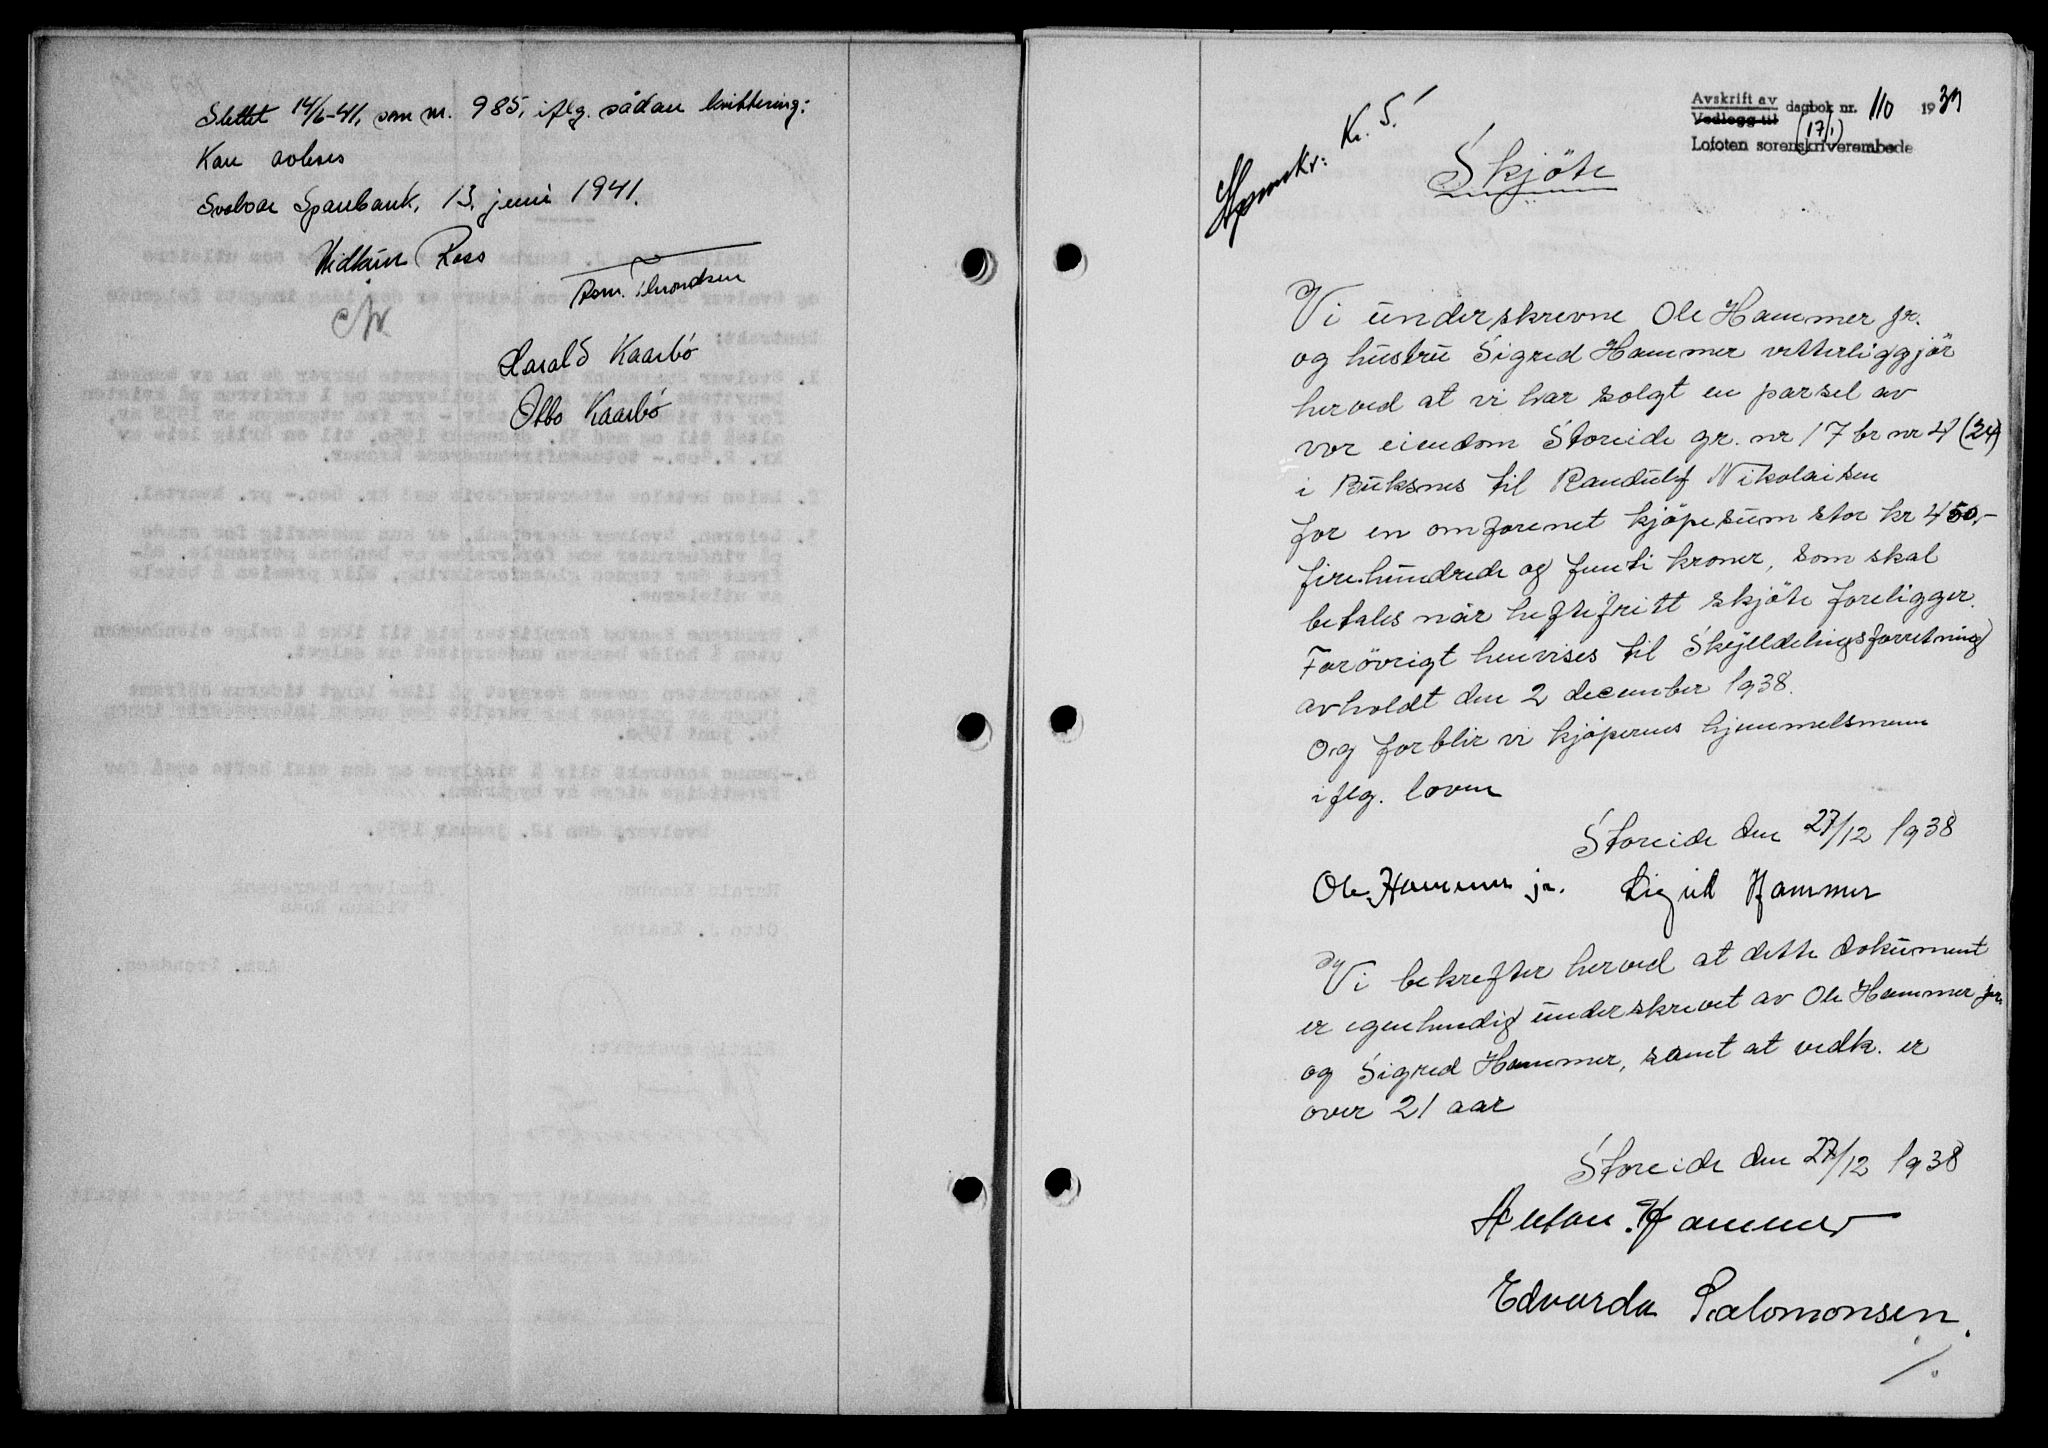 Slettet 14/6-41, som nr. 985, iflg. sådan kvittering:
Kan avleses
Svolvær Sparebank, 13. juni 1941.
Vidkun Ross
Asm. Trondsen
Harald Kaarbø
Otto Kaarbø
Avskrift av
Vedlegg til
dagbok nr. 110 1939
(17/1)
Lofoten sorenskriverembede
Kr. 5.
Skjöte
Vi underskrevne Ole Hammer jr.
og hustru Sigrid Hammer vitterliggjör
herved at vi har solgt en parsel av
vor eiendom Storeide gr. nr 17 br nr 4 (24)
i Buksnes til Randulf Nikolaisen
for en omforenet kjöpesum stor kr 450,-
firehundrede og femti kroner, som skal
betales når heftefritt skjöte foreligger.
Forövrigt henvises til Skylldelingsforretning
avholdt den 2 december 1938.
Og forblir vi kjöperens hjemmelsmenn
iflg. loven
Storeide den 27/12 1938
Ole Hammer jr. Sigrid Hammer
Vi bekrefter herved at dette dokument
er egenhendig underskrevet av Ole Hammer jr.
og Sigrid Hammer, samt at vedk. er
over 21 aar
Storeide den 27/12 1938
Anton Hammer
Edvarda Salomonsen.